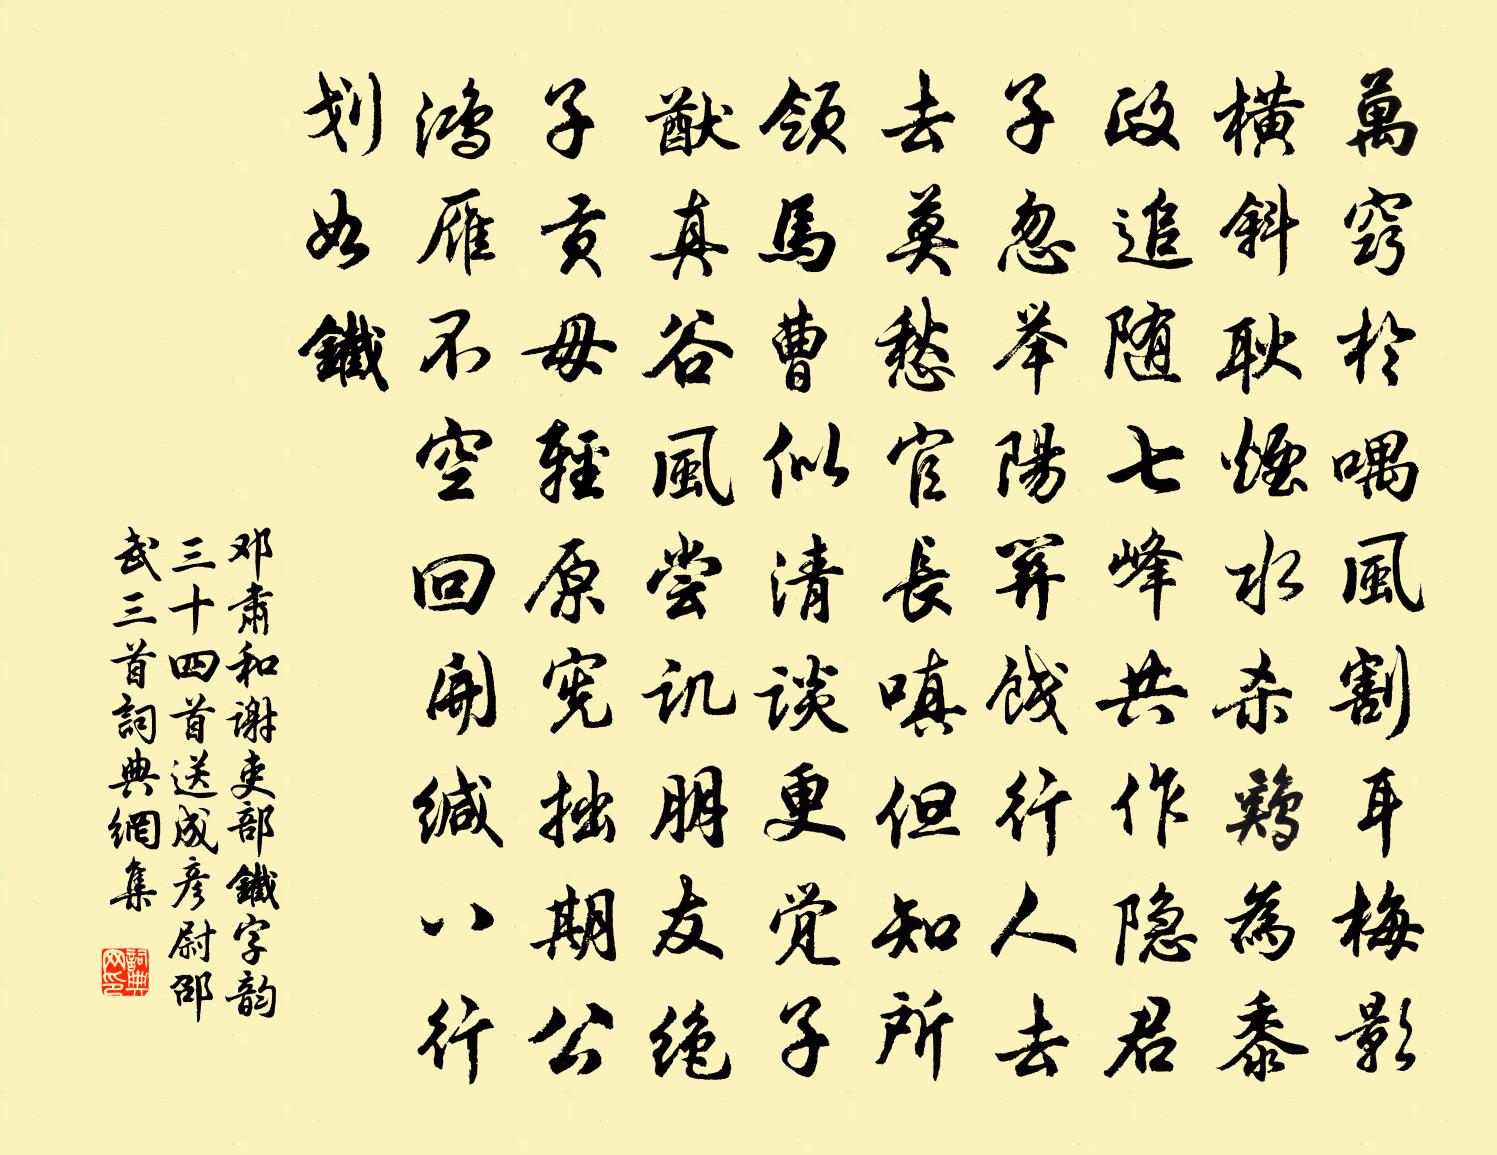 萬窍於喁風割耳梅影
橫斜耿煙水杀鷄為黍
政追随七峰共作隐君
子忽举陽関饯行人去
去莫愁官長嗔但知所
領馬曹似清谈更觉子
猷真谷風尝讥朋友绝
子贡毋輕原宪拙期公
鸿雁不空回開缄八行
划如鐵
邓肃和谢吏部鐵字韵
三十四首送成彦尉邵
武三首詞典網集
詞典网印